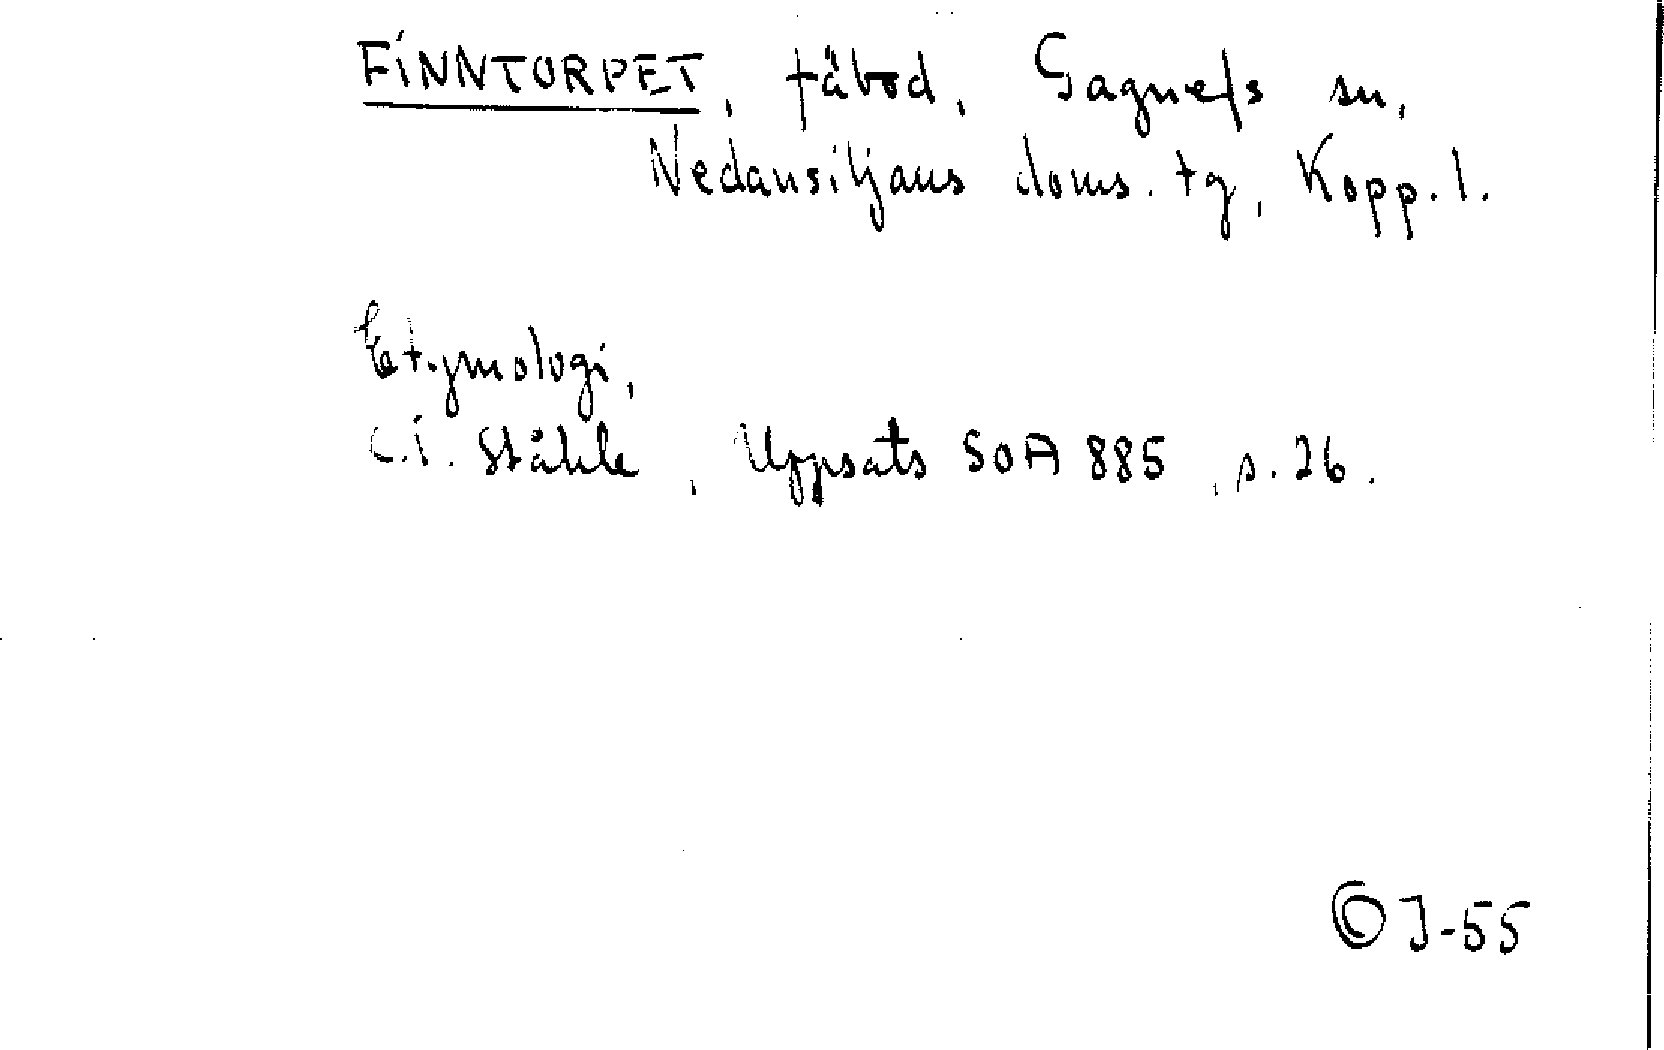 FINNTORPET, fäbod, Gagnefs sn,
Nedansiljans doms. tg, Kopp. l.
Etymologi,
C.I. Ståhle, Uppsats SOA 885, s. 26.
J-55